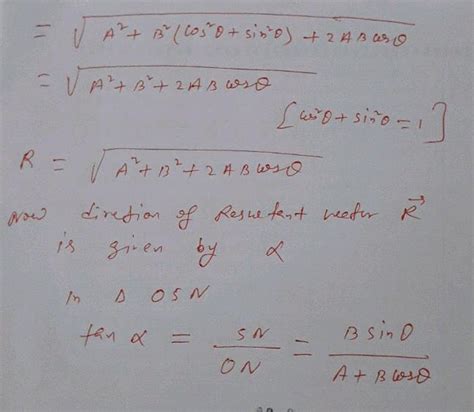 = √(A² + B² (cos²θ + sin²θ) + 2ABcosθ)
= √(A² + B² + 2ABcosθ)
[cos²θ + sin²θ = 1]
R = √(A² + B² + 2ABcosθ)
now direction of Resultant vector R⃗
is given by α
in Δ OSN
tan α = SN/ON = B sinθ/(A + Bcosθ)